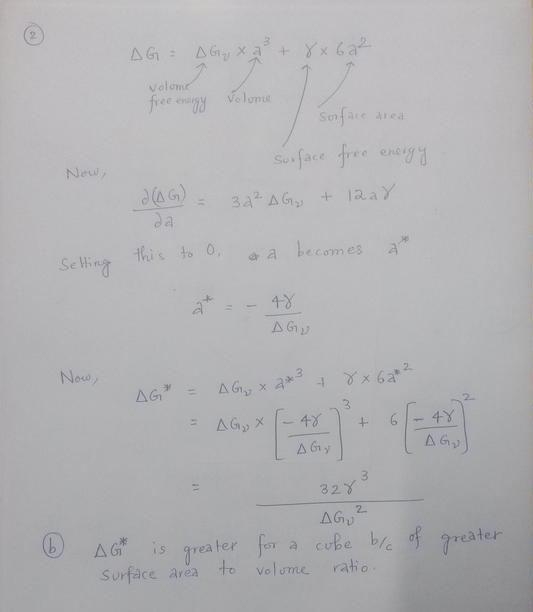 2
ΔG = ΔGᵥ × a³ + γ × 6a²
volume free energy
volume
Surface area
Surface free energy
Now,
∂(ΔG)/∂a = 3a² ΔGᵥ + 12aγ
Setting this to 0, a becomes a*
a* = - 4γ/ΔGᵥ
Now,
ΔG* = ΔGᵥ × a*³ + γ × 6a*²
= ΔGᵥ × [- 4γ/ΔGᵥ]³ + 6 [- 4γ/ΔGᵥ]²
= 32γ³/ΔGᵥ²
b ΔG* is greater for a cube b/c of greater
surface area to volume ratio.